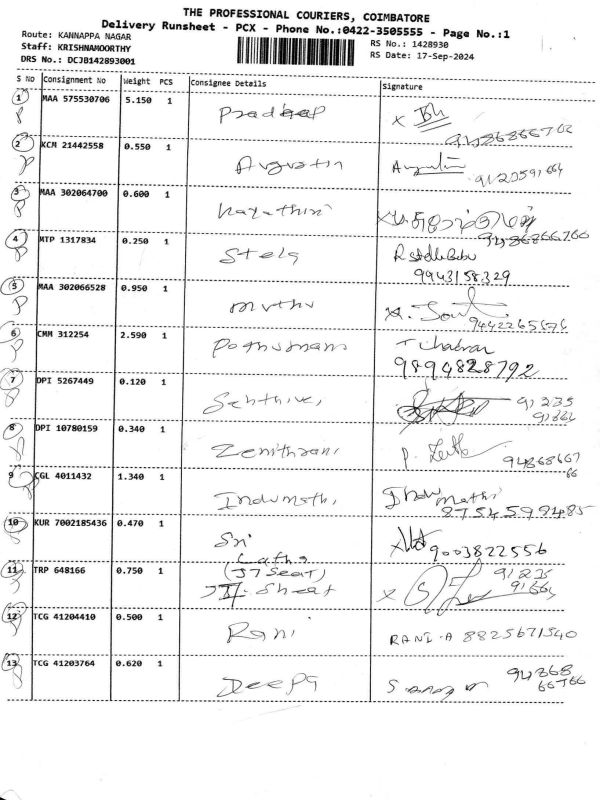 THE PROFESSIONAL COURIERS, COIMBATORE
Delivery Runsheet - PCX - Phone No.:0422-3505555 - Page No.:1
Route: KANNAPPA NAGAR
Staff: KRISHNAMOORTHY
DRS No.: DCJB142893001
RS No.: 1428930
RS Date: 17-Sep-2024
S No Consignment No Weight PCS Consignee Details Signature
1 MAA 575530706 5.150 1 Pradeep
2 KCM 21442558 0.550 1 Augustin
3 MAA 302064700 0.600 1
4 MTP 1317834 0.250 1 Stela
9943158329
5 MAA 302066528 0.950 1 muthu
6 CMM 312254 2.590 1
9894828792
7 DPI 5267449 0.120 1
91235
8 DPI 10780159 0.340 1 Zenithrani
9 CGL 4011432 1.340 1 Indumathi Indu mathi
8754599485
10 KUR 7002185436 0.470 1 Sri 9003822556
Latha
11 TRP 648166 0.750 1 (J7 Seat) 91235
12 TCG 41204410 0.500 1 Rani RANI-A 8825671540
13 TCG 41203764 0.620 1 Deepa 94868
66766